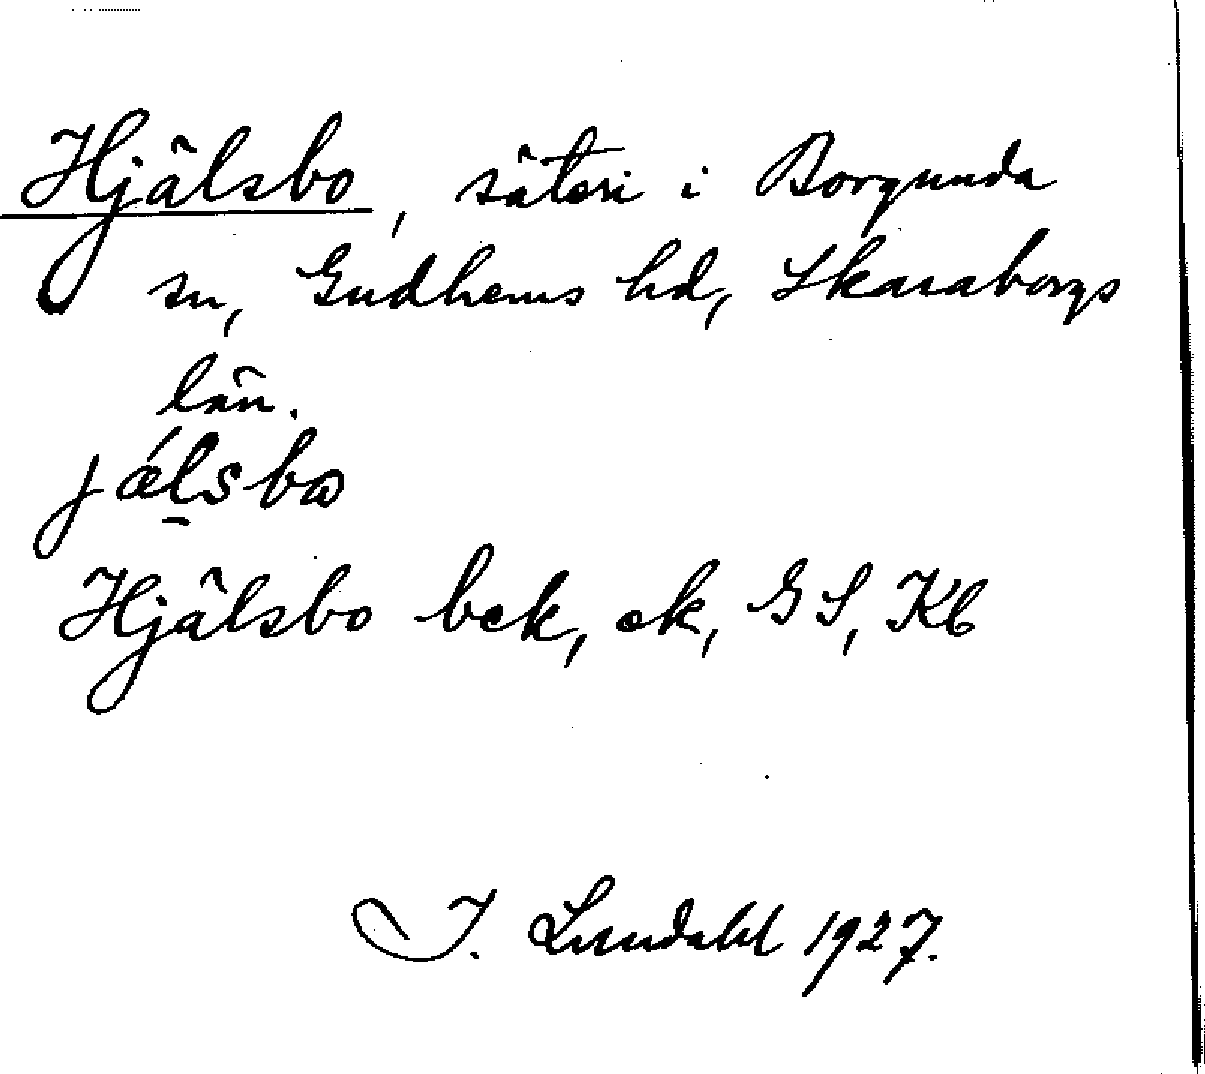 Hjälsbo, säteri i Borgunda
sn, Gudhems hd, Skaraborgs
län.
jǽlsbo
Hjälsbo bek, ek, GS, Kb
I. Lundahl 1927.